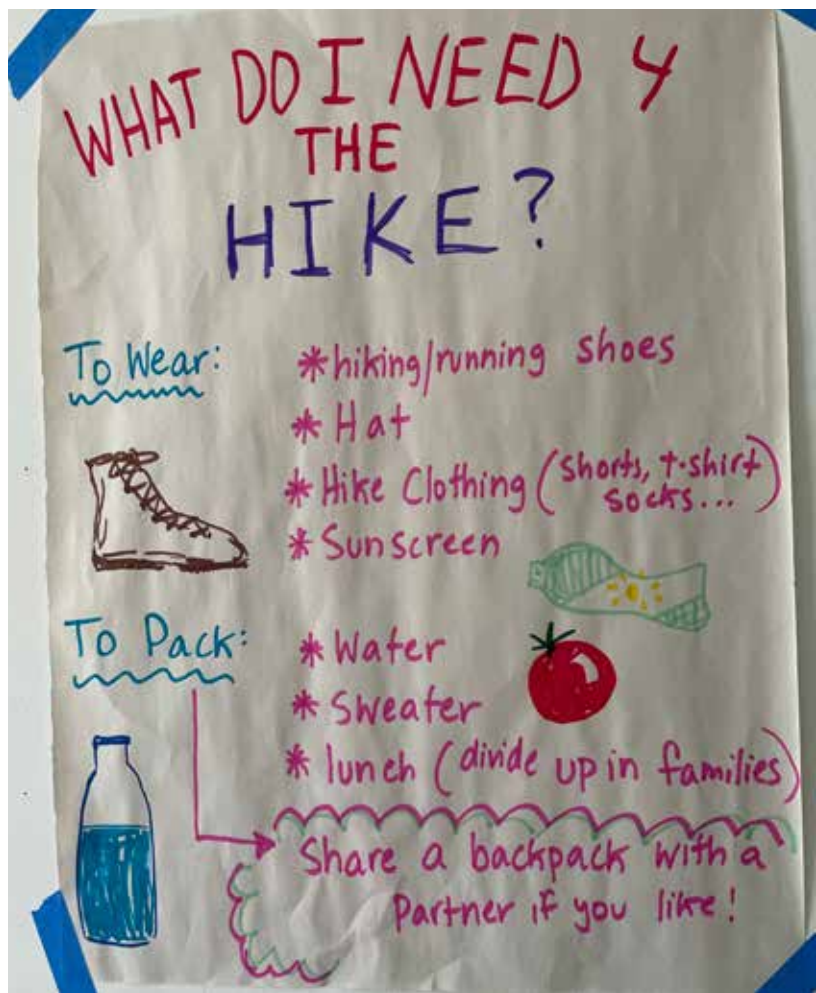 WHAT DO I NEED 4
THE
HIKE?
To Wear:
* hiking/running shoes
* Hat
* Hike Clothing (shorts, t-shirt
socks...)
* Sunscreen
To Pack:
* Water
* Sweater
* lunch (divide up in families)
Share a backpack with a
Partner if you like!